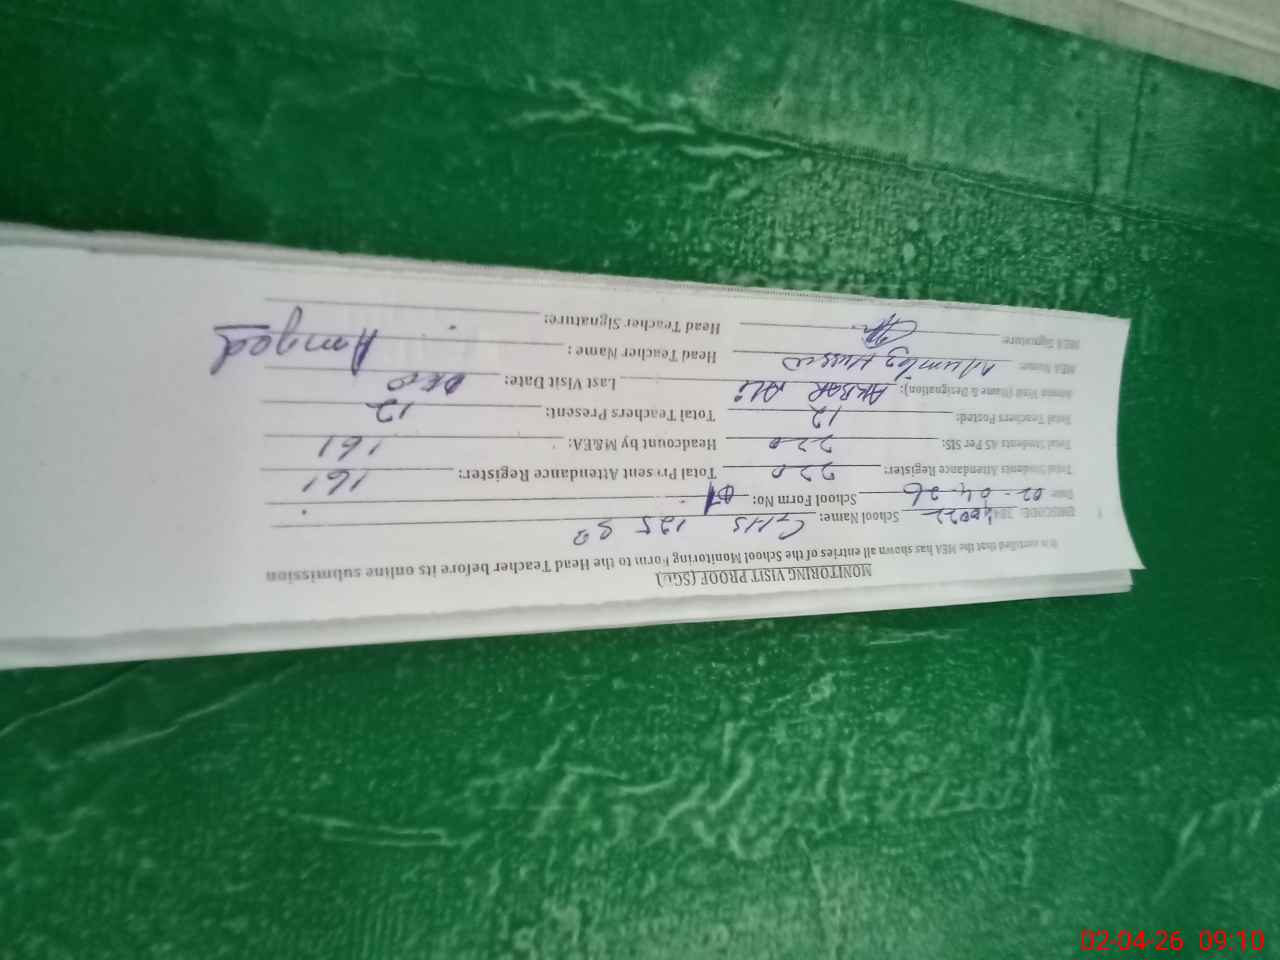 MONITORING VISIT PROOF (SGD)
It is certified that the MEA has shown all entries of the School Monitoring Form to the Head Teacher before its online submission
EMISCODE: 3840022 School Name: GHS 125 SB
Date: 02-04-26 School Form No: 01
Total Students Attendance Register: 220 Total Present Attendant Register: 161
Total Students AS Per SIS: 220 Headcount by M&EA: 161
Total Teachers Posted: 12 Total Teachers Present: 12
(Name & Designation): AKBAR Ali Last Visit Date:
MEA Name: Mumtaz Hussain Head Teacher Name: Amjad
MEA Signature: Head Teacher Signature:
02-04-26 09:10